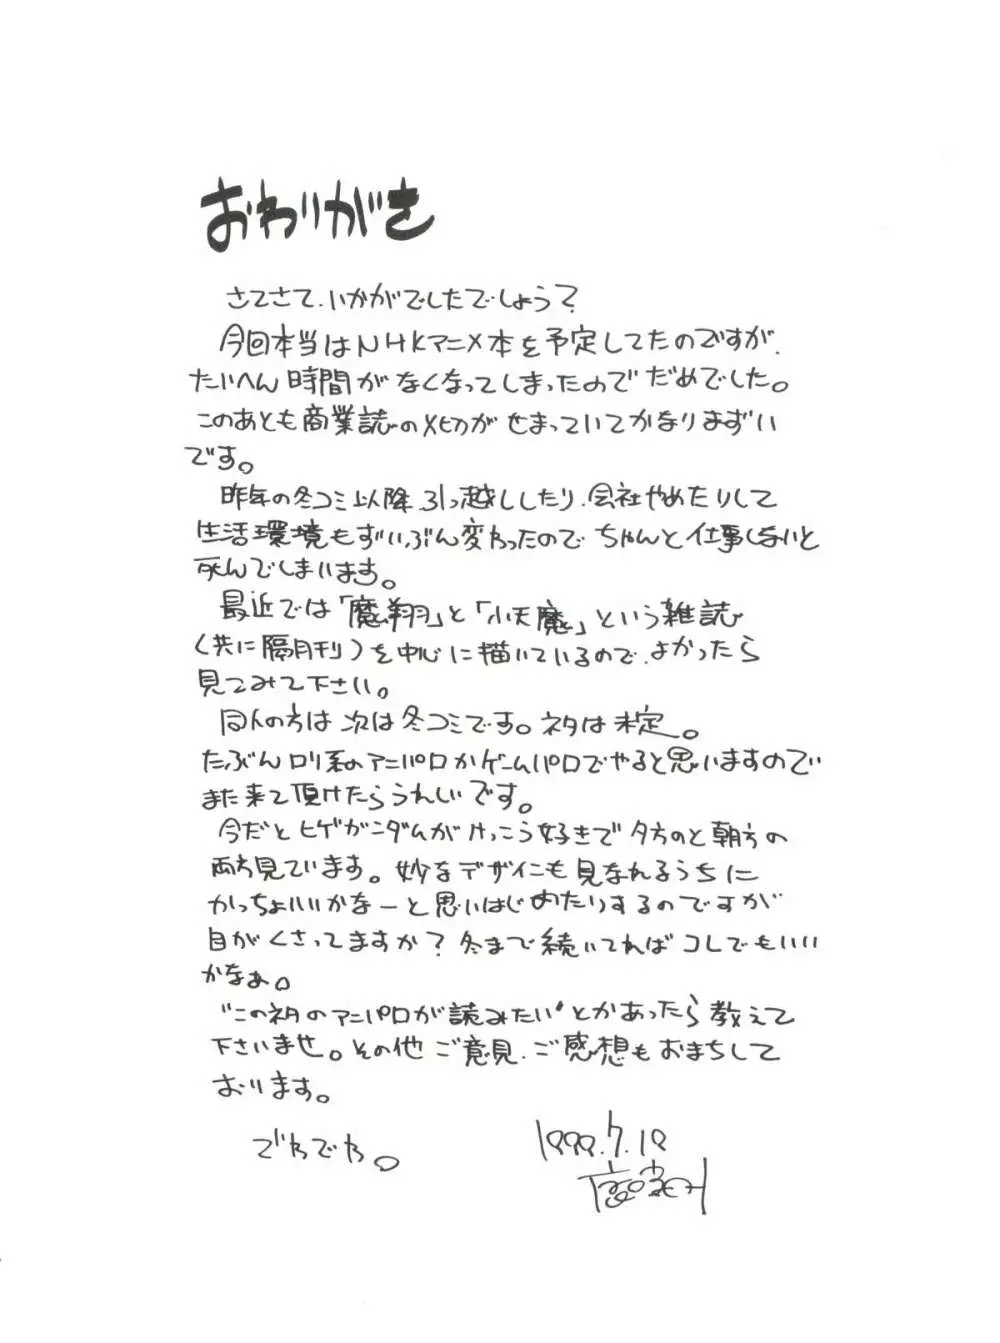 おわりがき
さてさて、いかがでしたでしょう?
今回本当はNHKアニメ本を予定してたのですが、
たいへん時間がなくなってしまったのでだめでした。
このあとも商業誌の〆切がせまっていてかなりまずい
です。
昨年の冬コミ以降、引っ越ししたり、会社やめたりして
生活環境もずいぶん変わったので ちゃんと仕事しないと
死んでしまいます。
最近では「魔翔」と「小天魔」という雑誌
(共に隔月刊)を中心に描いているので、よかったら
見てみて下さい。
同人の方は次は冬コミです。ネタは未定。
たぶんロリ系のアニパロかゲームパロでやると思いますので
また来て頂けたらうれしいです。
今だとヒゲガンダムがけっこう好きで夕方のと朝方の
両方見ています。妙なデザインも見なれるうちに
かっちょいいかなーと思いはじめたりするのですが
目がくさってますか?冬まで続いてればコレでもいい
かなぁ。
"この初のアニパロが読みたい"とかあったら教えて
下さいませ。その他 ご意見、ご感想もおまちして
おります。
でわでわ。
1999.7.19